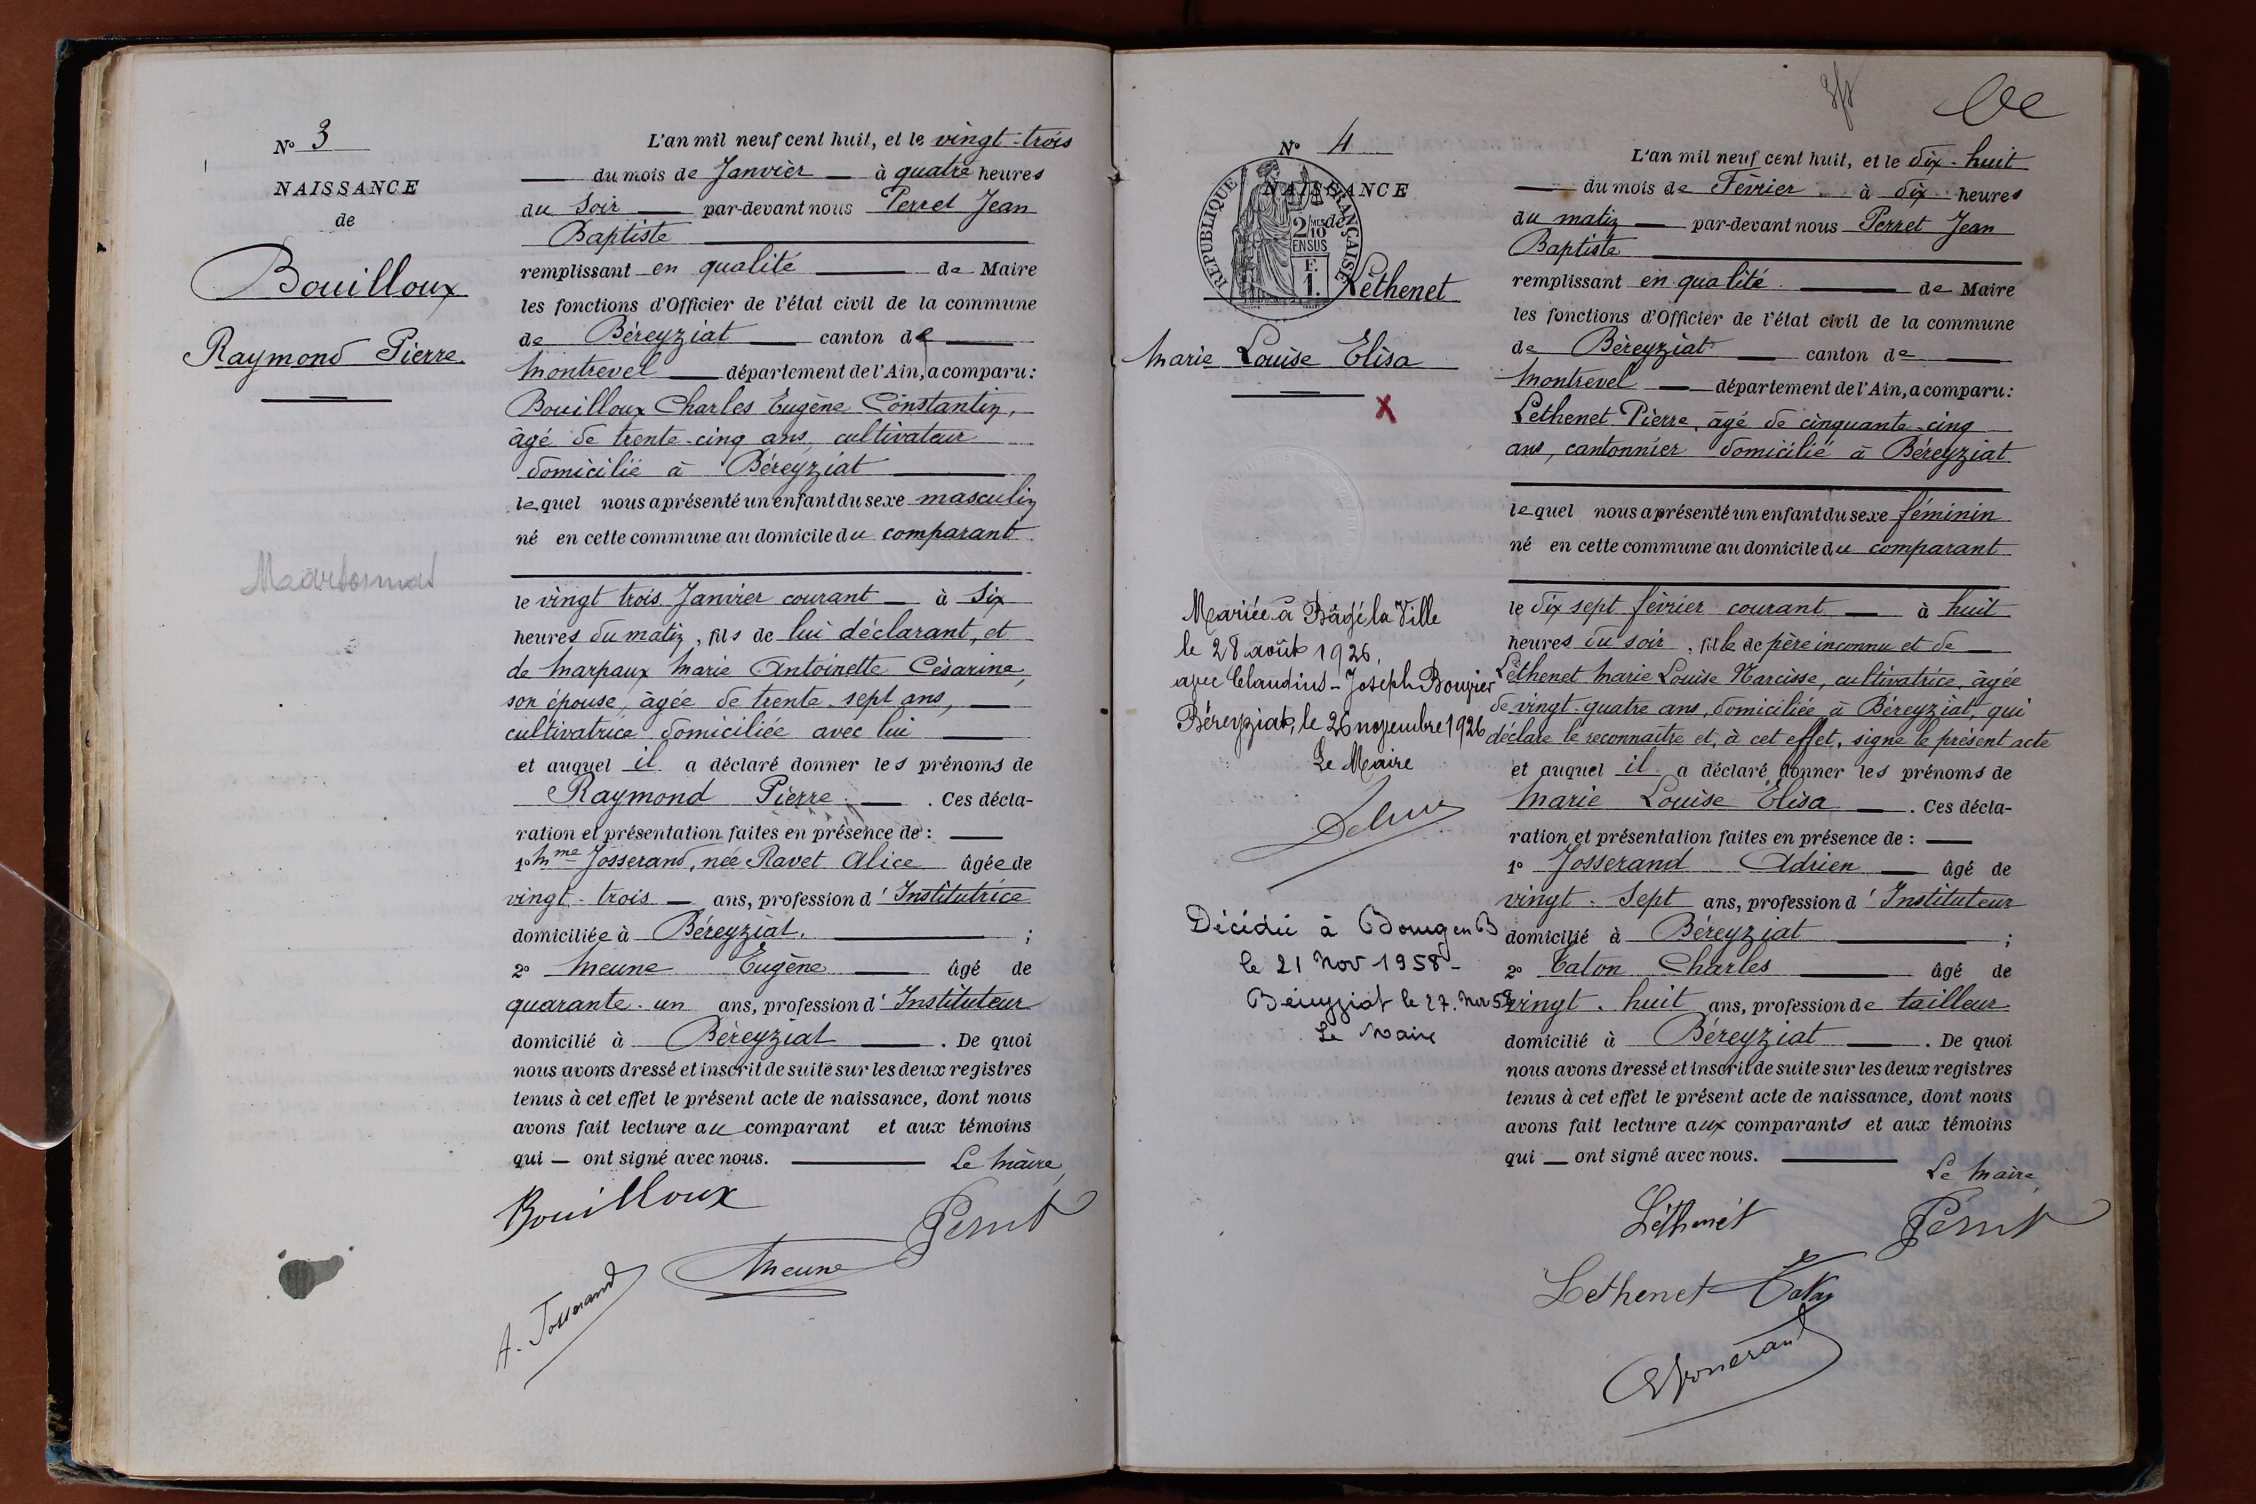 N° 3
NAISSANCE
de
Bouilloux
Raymond Pierre.
L'an mil neuf cent huit, et le vingt-trois
du mois de Janvier à quatre heures
du Soir par-devant nous Perret Jean
Baptiste
remplissant en qualité de Maire
les fonctions d'Officier de l'état civil de la commune
de Béreyziat canton de
Montrevel département de l'Ain, a comparu:
Bouilloux Charles Eugène Constantin,
âgé de trente-cinq ans, cultivateur
domicilié à Béreyziat
lequel nous a présenté un enfant du sexe masculin
né en cette commune au domicile du comparant
le vingt trois Janvier courant à Six
heures du matin, fils de lui déclarant, et
de Marpaux Marie Antoinette Césarine,
son épouse, âgée de trente-sept ans,
cultivatrice domiciliée avec lui
et auquel il a déclaré donner les prénoms de
Raymond Pierre. Ces décla-
ration et présentation faites en présence de:
1° Mme Josserand, née Ravet Alice âgée de
vingt-trois ans, profession d'Institutrice
domiciliée à Béreyziat. ;
2° Meune Eugène âgé de
quarante-un ans, profession d'Instituteur
domicilié à Béreyziat. De quoi
nous avons dressé et inscrit de suite sur les deux registres
tenus à cet effet le présent acte de naissance, dont nous
avons fait lecture au comparant et aux témoins
qui ont signé avec nous. Le Maire,
Bouilloux
Perret
Meune
A. Josserand
N° 4
NAISSANCE
de
RÉPUBLIQUE FRANÇAISE
2/10 MES
EN SUS
F.
1.
Léthenet
Marie Louise Elisa
X
Mariée à Bâgé la Ville
le 28 août 1926,
avec Claudius-Joseph Bouvier
Béreyziat, le 26 novembre 1926
Le Maire
Décédée à Bourg en B
le 21 Nov 1958-
Béreyziat le 27. Nov 58
Le Maire
L'an mil neuf cent huit, et le dix-huit
du mois de Février à dix heures
du matin par-devant nous Perret Jean
Baptiste
remplissant en qualité de Maire
les fonctions d'Officier de l'état civil de la commune
de Béreyziat canton de
Montrevel département de l'Ain, a comparu:
Léthenet Pierre, âgé de cinquante-cinq
ans, cantonnier domicilié à Béreyziat
lequel nous a présenté un enfant du sexe féminin
né en cette commune au domicile du comparant
le dix sept février courant à huit
heures du soir, fille de père inconnu et de
Léthenet Marie Louise Narcisse, cultivatrice, âgée
de vingt-quatre ans, domiciliée à Béreyziat, qui
déclare le reconnaître et, à cet effet, signe le présent acte
et auquel il a déclaré donner les prénoms de
Marie Louise Elisa. Ces décla-
ration et présentation faites en présence de:
1° Josserand Adrien âgé de
vingt-Sept ans, profession d'Instituteur
domicilié à Béreyziat ;
2° Caton Charles âgé de
vingt-huit ans, profession de tailleur
domicilié à Béreyziat. De quoi
nous avons dressé et inscrit de suite sur les deux registres
tenus à cet effet le présent acte de naissance, dont nous
avons fait lecture aux comparants et aux témoins
qui ont signé avec nous.
Le Maire
Léthenet
Perret
Lethenet Caton
Josserand